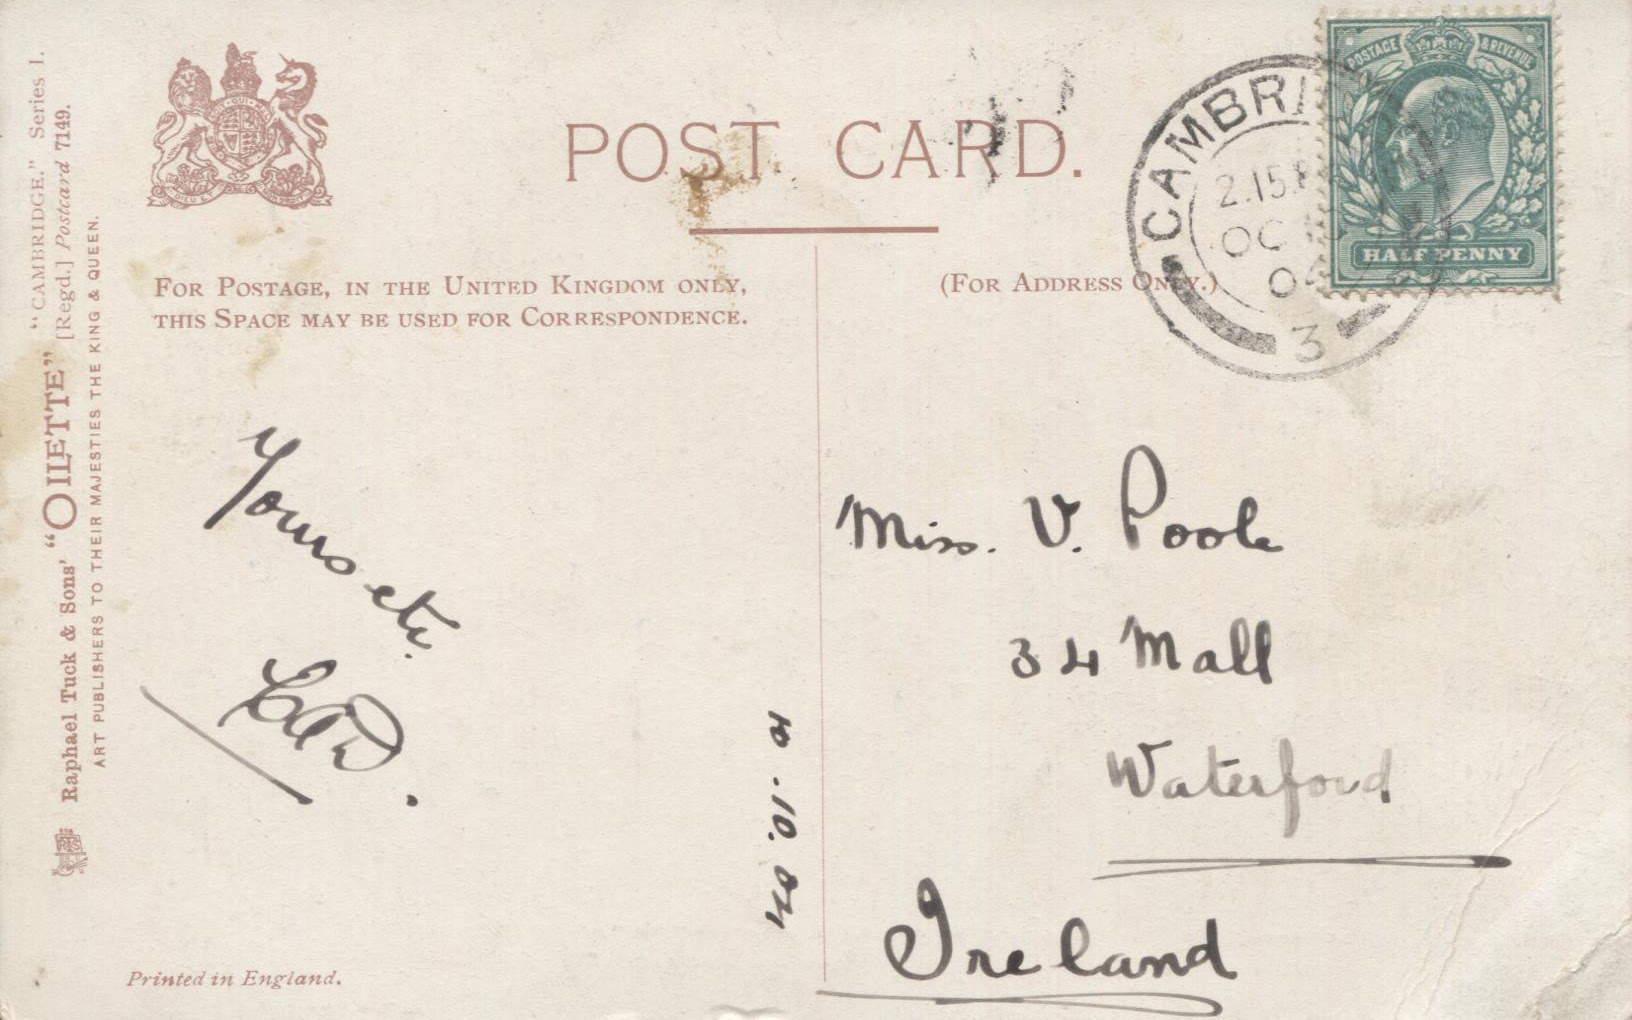 "CAMBRIDGE." Series I.
Raphael Tuck & Sons' "OILETTE" [Regd.] Postcard 7149.
ART PUBLISHERS TO THEIR MAJESTIES THE KING & QUEEN.
POST CARD.
FOR POSTAGE, IN THE UNITED KINGDOM ONLY,
THIS SPACE MAY BE USED FOR CORRESPONDENCE.
(FOR ADDRESS ONLY.)
POSTAGE & REVENUE
HALF PENNY
2.15 P
OC
3
Yours etc.
Miss. V. Poole
34 Mall
Waterford
Ireland
10.04
Printed in England.